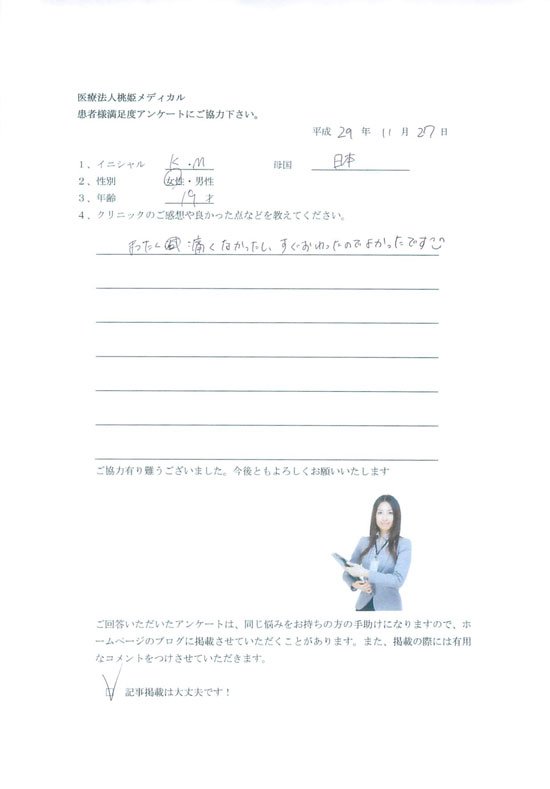 医療法人桃姫メディカル
患者様満足度アンケートにご協力下さい。
平成 29 年 11 月 27 日
1、イニシャル K・M 母国 日本
2、性別 女性・男性
3、年齢 19 才
4、クリニックのご感想や良かった点などを教えてください。
まったく 痛くなかったし、すぐおわったのでよかったです
ご協力有り難うございました。今後ともよろしくお願いいたします
ご回答いただいたアンケートは、同じ悩みをお持ちの方の手助けになりますので、ホ
ームページのブログに掲載させていただくことがあります。また、掲載の際には有用
なコメントをつけさせていただきます。
□ 記事掲載は大丈夫です！